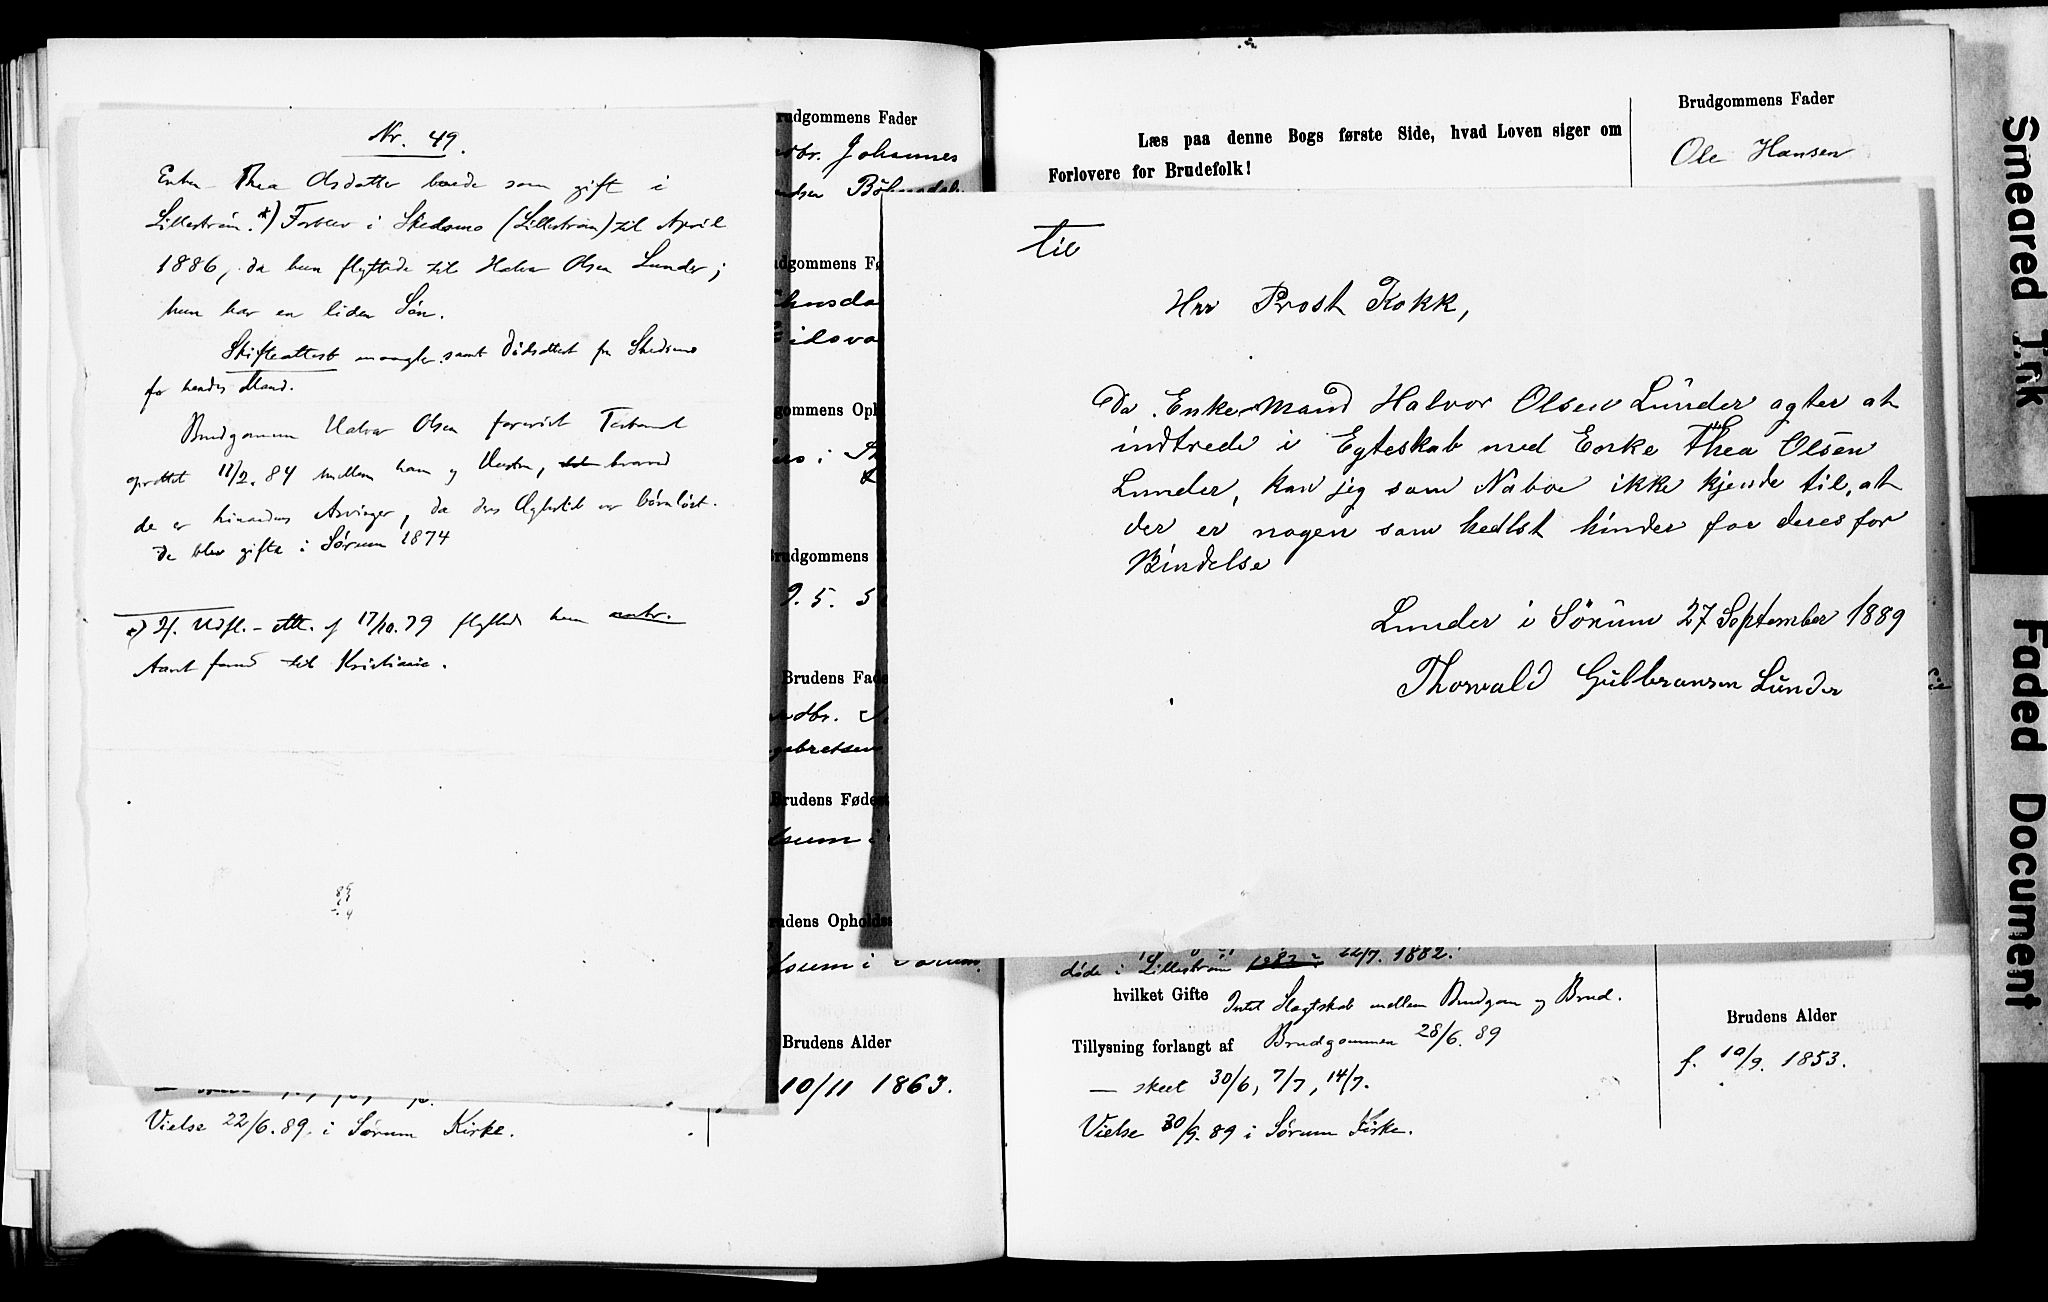 Nr. 49.
Enken Thea Olsdatter boede som gift i
Lilleström.*) Forblev i Skedsmo (Lilleström) til April
1886, da hun flyttede til Halvor Olsen Lunder;
hun har en liden Søn.
Skifteattest mangler samt Dödsattest fra Skedsmo
for hendes Mand.
Brudgommen Halvor Olsen foreviste Testament
oprettet 11/2. 84 mellem ham og Hustru,
de er hinandens Arvinger, da deres Ægteskab var börnlöst.
De blev gifte i Sörum 1874
*) If. Udfl.-Att. af 17/10. 79 flyttede hun
til Kristiania.
Brudgommens Fader
Johannes
Brudens Fade
Brudens Fødest
Brudens Opholdss
Brudens Alder
10/11 1863.
Vielse 22/6. 89. i Sørum Kirke.
Læs paa denne Bogs første Side, hvad Loven siger om
Forlovere for Brudefolk!
Brudgommens Fader
Ole Hansen
til
Herr Prost Kokk,
Da Enkemand Halvor Olsen Lunder agter at
indtrede i Egteskab med Enke Thea Olsen
Lunder, kan jeg som Naboe ikke kjende til, at
der er nogen som hedlst hinder for deres for
Bindelse
Lunder i Sörum 27 September 1889
Thorvald Gulbransen Lunder
døde i Lilleström 22/7. 1882.
hvilket Gifte Intet Slægtskab mellem Brudgom og Brud.
Tillysning forlangt af Brudgommen 28/6. 89
— skeet 30/6, 7/7, 14/7.
Vielse 30/9. 89 i Sørum Kirke.
Brudens Alder
f. 10/9. 1853.
Smeared Ink
Faded Document